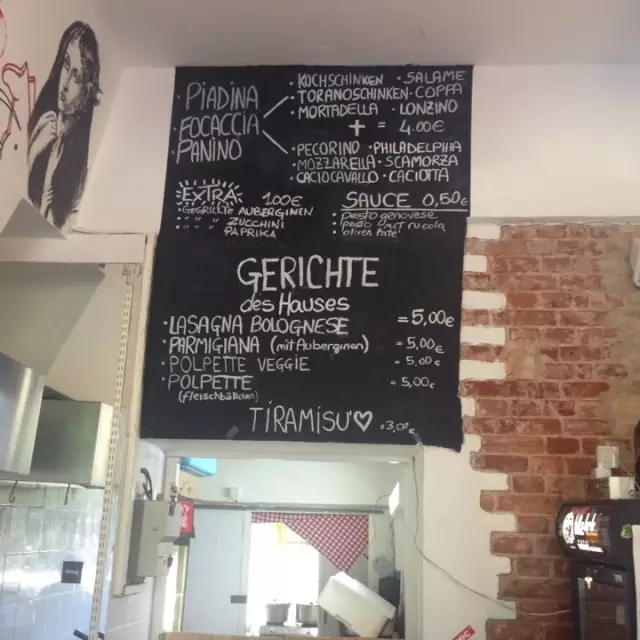 · PIADINA
· FOCACCIA
· PANINO
· KOCHSCHINKEN · SALAME
· TORANOSCHINKEN · COPPA
· MORTADELLA · LONZINO
+ = 4.00€
· PECORINO · PHILADELPHIA
· MOZZARELLA · SCAMORZA
· CACIOCAVALLO · CACIOTTA
EXTRA 1.00€
· GEGRILLTE AUBERGINEN
" " " ZUCCHINI
PAPRIKA
SAUCE 0,50€
· pesto genovese
· pesto mit rucola
· oliven paté
GERICHTE
des Hauses
· LASAGNA BOLOGNESE = 5,00€
· PARMIGIANA (mit Auberginen) = 5,00€
· POLPETTE VEGGIE = 5,00€
· POLPETTE = 5,00€
(fleischbällchen)
TIRAMISU' ♡ = 3,00€